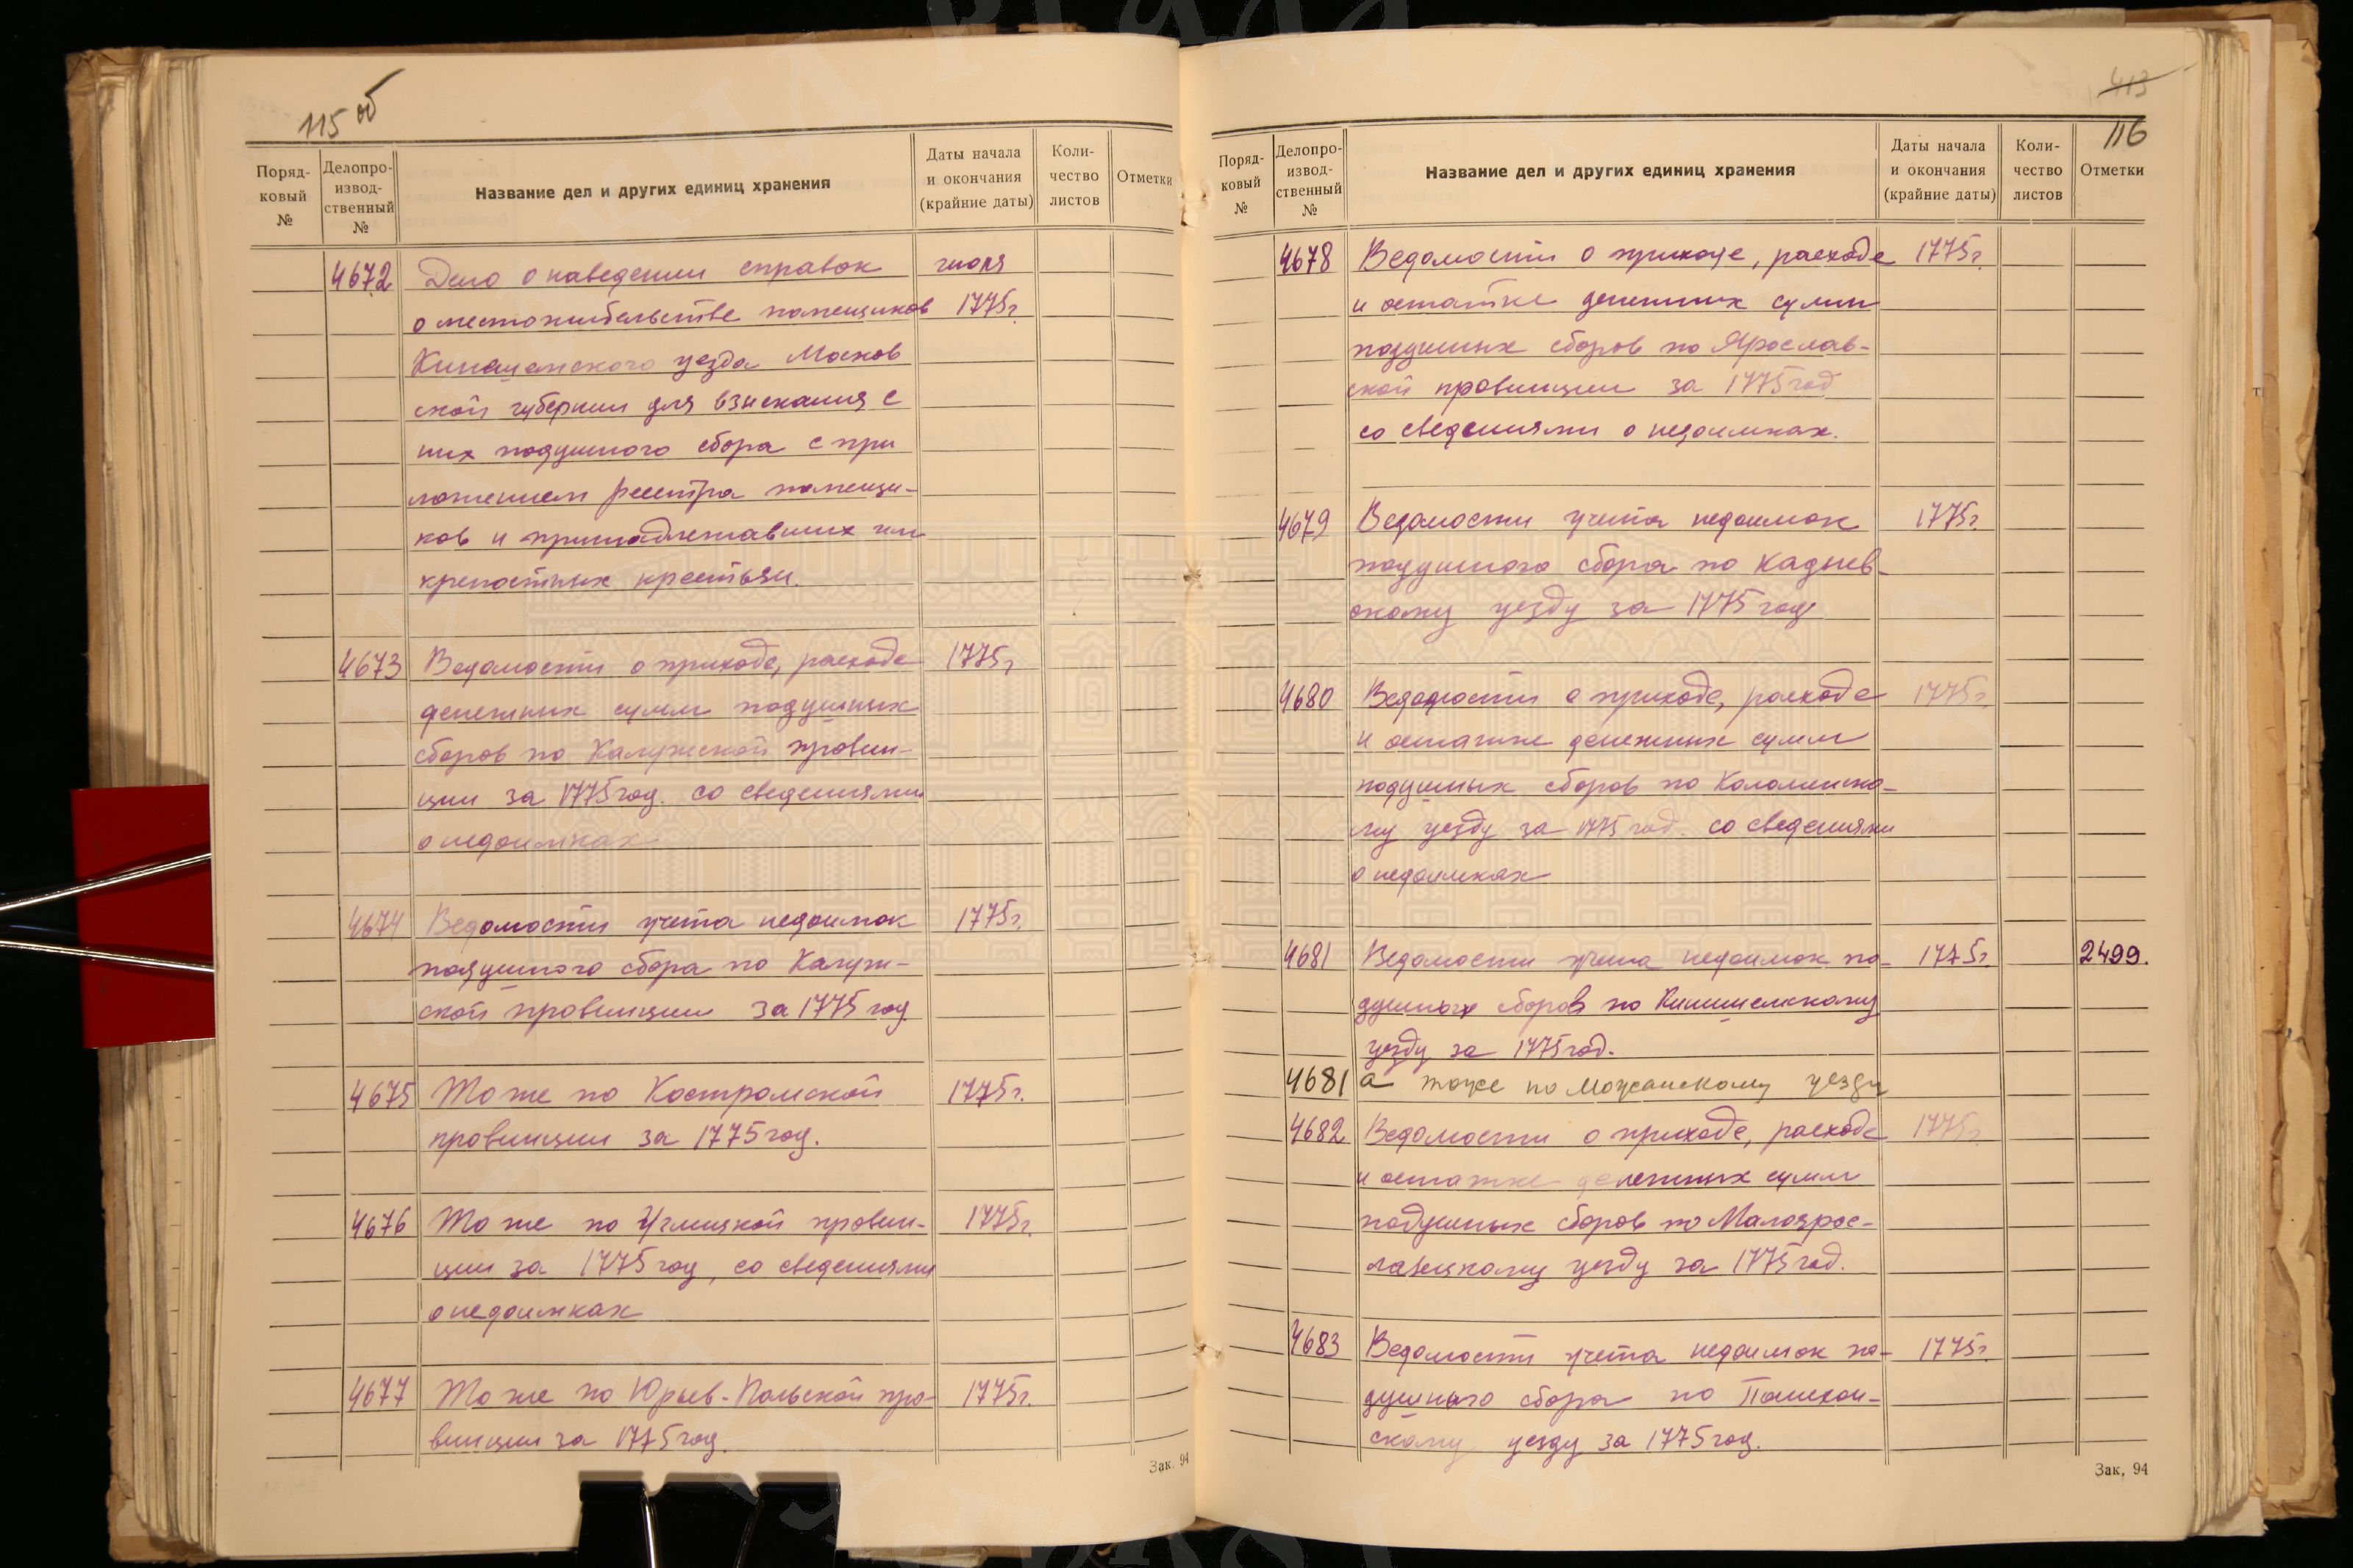 115 об
Поряд-
ковый
№
Делопро-
извод-
ственный
№
Название дел и других единиц хранения
Даты начала
и окончания
(крайние даты)
Коли-
чество
листов
Отметки
4672 Дело о наведении справок июля
о местожительстве помещиков 1775г.
Кинешемского уезда Москов
ской губернии для взыскания с
них подушного сбора с при
ложением реестра помещи-
ков и принадлежавших им
крепостных крестьян.
4673 Ведомости о приходе, расходе 1775г.
денежных сумм подушных
сборов по Калужской провин-
ции за 1775 год. со сведениями
о недоимках
4674 Ведомости учета недоимок 1775г.
подушного сбора по Калуж-
ской провинции за 1775 год
4675 То же по Костромской 1775г.
провинции за 1775 год.
4676 То же по Углицкой провин- 1775г.
ции за 1775 год, со сведениями
о недоимках
4677 То же по Юрьев-Польской про- 1775г.
винции за 1775 год.
Зак. 94
413
116
Поряд-
ковый
№
Делопро-
извод-
ственный
№
Название дел и других единиц хранения
Даты начала
и окончания
(крайние даты)
Коли-
чество
листов
Отметки
4678 Ведомости о приходе, расходе 1775г.
и остатке денежных сумм
подушных сборов по Ярослав-
ской провинции за 1775 год
со сведениями о недоимках.
4679 Ведомости учета недоимок 1775г.
подушного сбора по Кадыев-
скому уезду за 1775 год
4680 Ведомости о приходе, расходе 1775г.
и остатке денежных сумм
подушных сборов по Коломенско-
му уезду за 1775 год. со сведениями
о недоимках
4681 Ведомости учета недоимок по- 1775г. 2499.
душного сборов по Кинешемскому
уезду за 1775 год.
4681 а тоже по Можайскому уезду
4682 Ведомости о приходе, расходе 1775г.
и остатке денежных сумм
подушных сборов по Малоярос-
лавецкому уезду за 1775 год.
4683 Ведомости учета недоимок по- 1775г.
душного сбора по Пошехон-
скому уезду за 1775 год.
Зак. 94